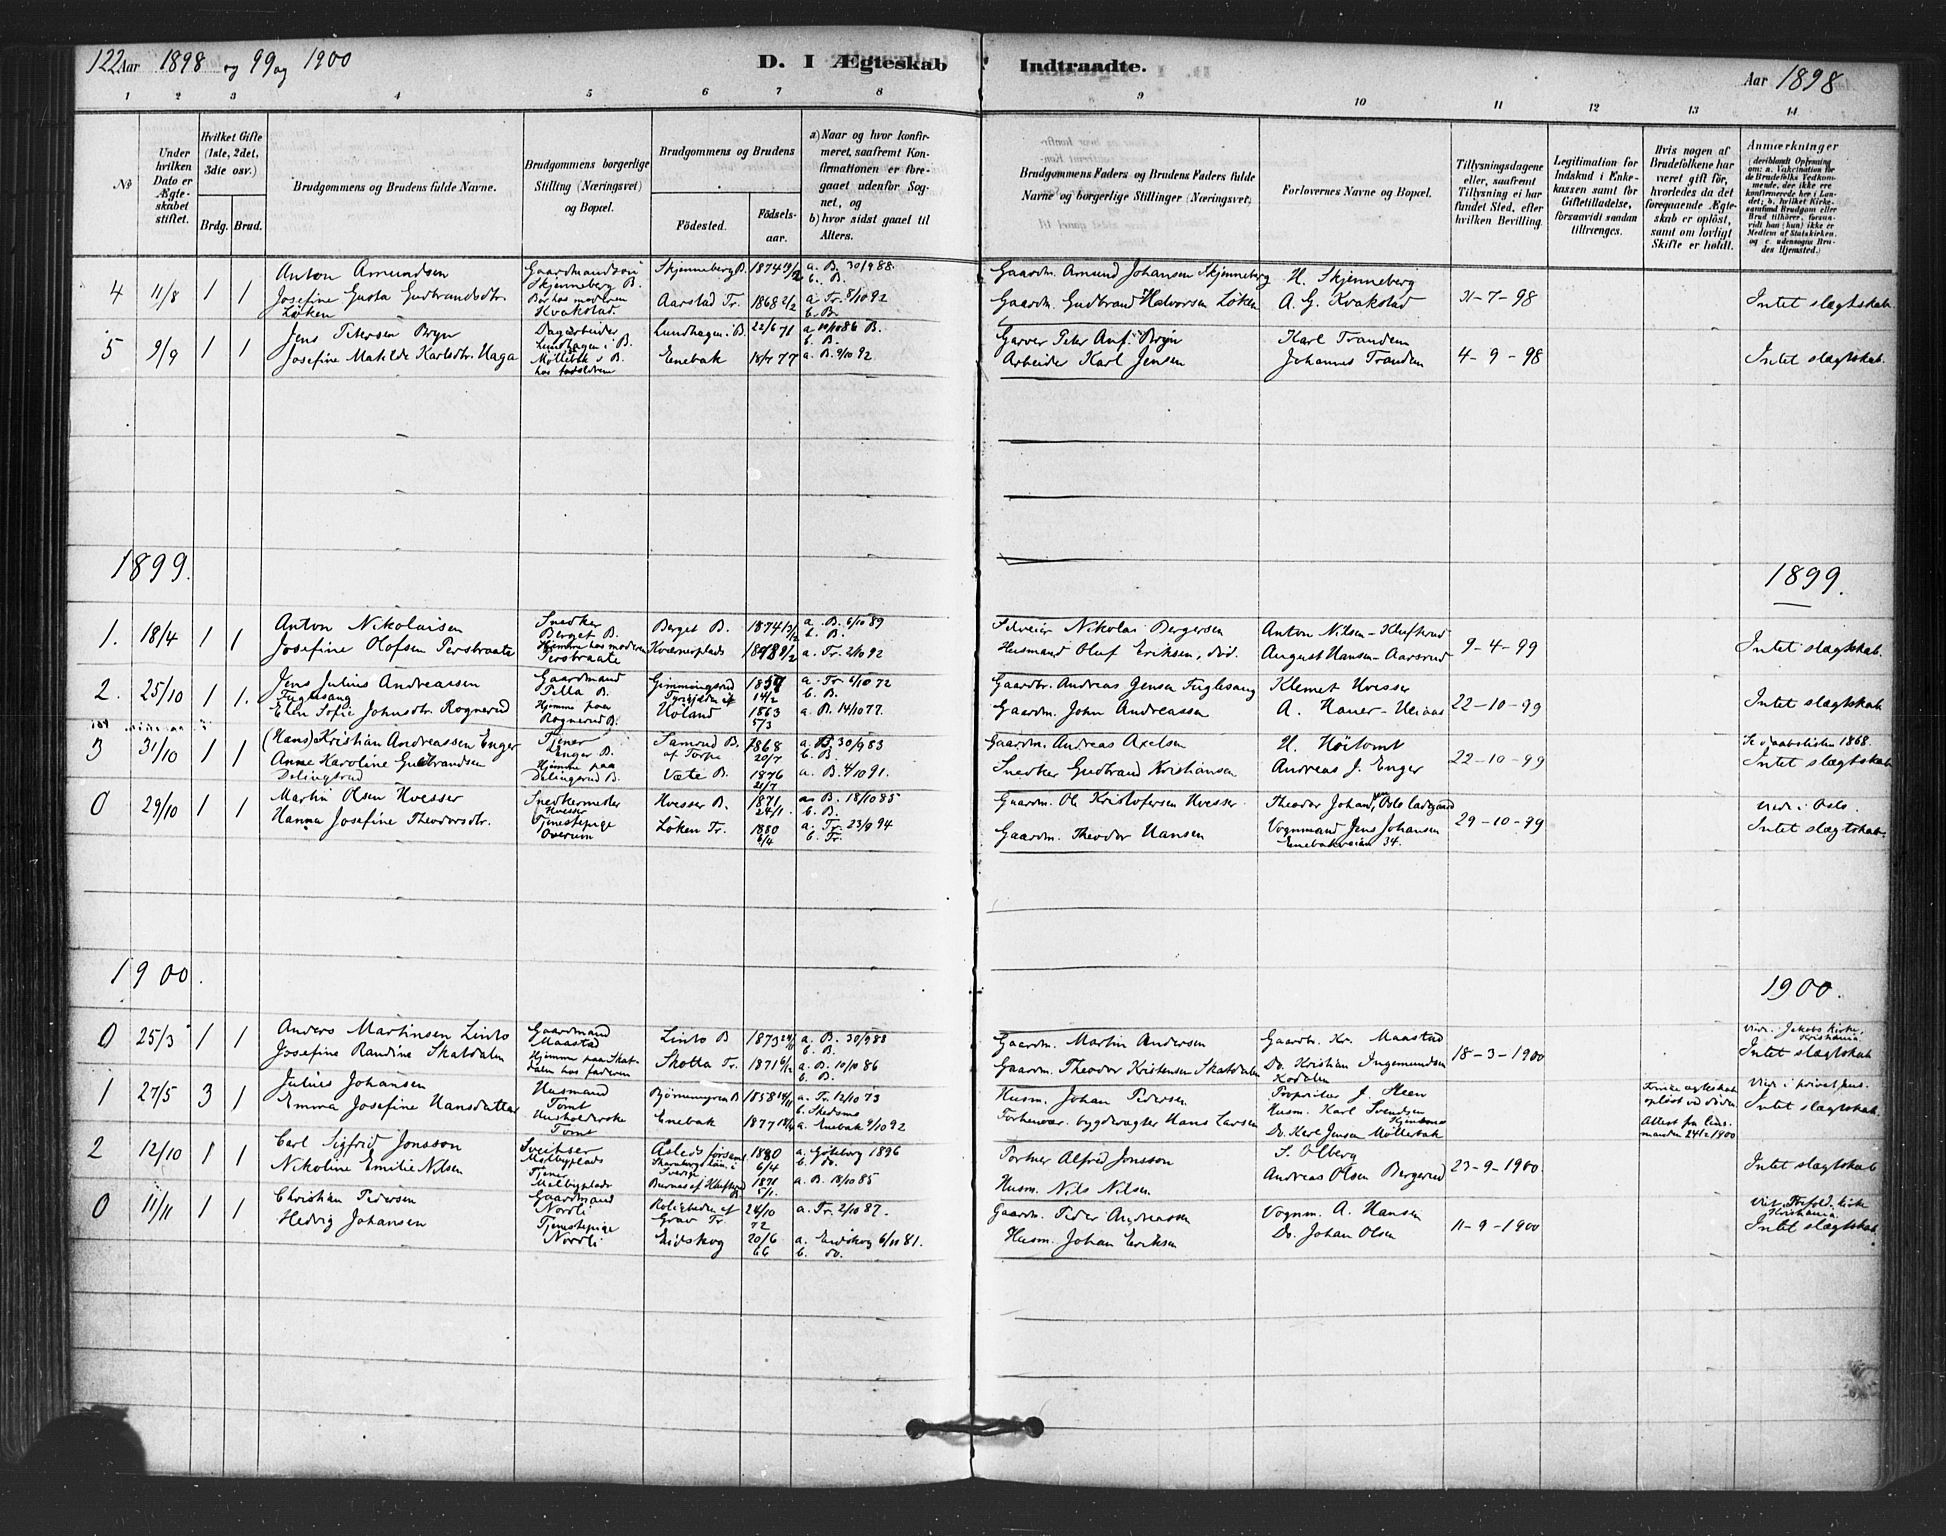 122 Aar 1898 og 99 og 1900
D. I Ægteskab Indtraadte.
Aar 1898
1 2 3 4 5 6 7 8 9 10 11 12 13 14
No
Under hvilken Dato er Ægteskabet stiftet.
Hvilket Gifte (1ste, 2det, 3die osv.)
Brdg. Brud.
Brudgommens og Brudens fulde Navne.
Brudgommens borgerlige Stilling (Næringsvei) og Bopæl.
Brudgommens og Brudens
Fødested.
Fødselsaar.
a) Naar og hvor konfirmeret, saafremt Konfirmationen er foregaaet udenfor Sognet, og
b) hvor sidst gaaet til Alters.
Brudgommens Faders og Brudens Faders fulde Navne og borgerlige Stillinger (Næringsvei)
Forlovernes Navne og Bopæl.
Tillysningsdagene eller, saafremt Tillysning ei har fundet Sted, efter hvilken Bevilling.
Legitimation for Indskud i Enkekassen samt for Giftetilladelse, forsaavidt saadan tiltrænges.
Hvis nogen af Brudefolkene har været gift før, hvorledes da det foregaaende Ægteskab er opløst, samt om lovligt Skifte er holdt.
Anmærkninger
(deriblandt Oplysning om: a. Vaccination for de Brudefolks Vedkommende, der ikke ere konfirmerede her i Landet; b. hvilket Kirkesamfund Brudgom eller Brud tilhører, forsaavidt han (hun) ikke er Medlem af Statskirken, og c. udensogns Brudes Hjemsted.)
4 11/8 1 1 Anton Amundsen Gaardmandssøn Skjenneberg B. Skjenneberg B. 1874 19/2 a. B. 30/9 88. b. B. Gaardm. Amund Johansen Skjenneberg H. Skjenneberg
Josefine Gusta Gudbrandsdtr. Løken Bor hos moderen Kvakstad Aarstad Tr. 1868 2/2 a. Tr. 8/10 92 b. B. Gaardm. Gudbrand Halvorsen Løken A. G. Kvakstad 31-7-98 Intet slægtskab.
5 9/9 1 1 Jens Petersen Bryn Dagarbeider Lundhagen i B. Lundhagen i B. 22/6 71 a. 10/10 86 B. b. B. Garver Peter Bryn Karl Trandem
Josefine Matilde Karlsdtr. Haga Møllebk i B. hos forældrene Enebak 18/7 77 a. B. 9/10 92 Arbeider Karl Jensen Johannes Trandem 4-9-98 Intet slægtskab.
1899. 1899.
1. 18/4 1 1 Anton Nikolaisen Snedker Berget B. Berget B. 1874 13/2 a. B. 6/10 89 b. B. Selveier Nikolai Bergersen Anton Nilsen-Kluftrud
Josefine Olofsen Perstraate Hjemme hos moderen Perstraate Kværnplads a. Tr. 2/10 92 Husmand Oluf Eriksen, død. August Hansen-Aarsrud 9-4-99 Intet slægtskab.
2. 25/10 1 1. Jens Julius Andreassen Fuglesang Gaardmand Tilla B. Gimmingsrud 14/2 a. Tr. 6/10 72 b. B. Gaardbr. Andreas Jensen Fuglesang Klemet Hvesser
Elen Sofie Johnsdtr. Rognerud Hjemme paa Rognerud B. Høland 1863 5/3 a. B. 14/10 77. Gaardm. John Andreassen A. Hauer 22-10-99 Intet slægtskab.
3 31/10 1 1 (Hans) Kristian Andreassen Enger Tjener Enger B. Samrud B. af Torpe 1868 20/7 a. B. 30/9 83 b. B. Gaardm. Andreas Axelsen H. Høitomt 1868.
Anne Karoline Gudbrandsen Delingsrud Hjemme paa Delingsrud B. Væte B. 1876 21/7 a. B. 4/10 91. Snedker Gudbrand Kristiansen Andreas J. Enger 22-10-99 Intet slægtskab.
0 29/10 1 1 Martin Olsen Hvesser Snedkermester Hvesser Hvesser B. 1871 24/1. a. B. 18/10 85 b. B. Gaardm. Ol. Kristofersen Hvesser Theodor Johansen, Oslo ladegaard Viede i Oslo.
Hanna Josefine Theodorsdtr. Tjenestepige Overum Løken Tr. 1880 6/4 a. Tr. 23/9 94 b. Tr. Gaardm. Theodor Hansen Vognmand Jens Johansen Enebakveien 34. 29-10-99 Intet slægtskab.
1900. 1900.
0 25/3 1 1 Anders Martinsen Linto Gaardmand Maastad Linto B 1873 a. B. 30/9 88 b. B. Gaardm. Martin Andersen Gaardbr. Kr. Maastad Viede i Jakobs kirke, Kristiania.
Josefine Randine Skatdalen Hjemme paa Skatdalen hos faderen Skotta Tr. 1871 6/2 a. B. 10/10 86 b. B. Gaardm. Theodor Kristensen Skatdalen Do. Kristian Ingemundsen Kodalen 18-3-1900 Intet slægtskab
1 27/5 3 1 Julius Johansen Husmand Tomt Bjørnmyren B 1858 14/11 a. Tr. 12/10 73 b. Skedsmo Husm. Johan Pedersen Proprietær J. Heen Første ægteskab opløst ved døden. Viede i privat hus.
Emma Josefine Hansdatter Husholderske Tomt Enebak a. Enebak 9/10 92 Forhenvær. bygdevægter Hans Larsen Husm. Karl Svendsen Do. Karl Jensen Møllerbak Attest fra lensmanden 24/2 1900 Intet slægtskab.
2 12/10 1 1 Carl Sigfrid Jonsson Sveitser Melbyplads Åsleds forsaml. Skaraborgs län i Sverige 1880 6/4 a. Gøteborg 1896 b. do. Portner Alfred Jonsson S. Olberg
Nikoline Emilie Nilsen Tjener Melbyplads Burnes ef Kluftrud B 1871 5/1. a. B. 18/10 85 Husm. Nils Nilsen Andreas Olsen Bergerud 23-9-1900. Intet slægtskab
0 11/11 1 1 Christian Pedersen Gaardmand Nordli Roligheden af Grav Tr. 24/10 72 a. Tr. 2/10 87. Gaardm. Peder Andreassen Vognm. A. Hansen Viet Trefold. kirke Kristiania.
Hedvig Johansen Tjenestepige Nordli Eidskog 20/6 66 a. Eidskog 6/11 81. b. do. Husm. Johan Eriksen Do. Johan Olsen 11-9-1900 Intet slægtskab.